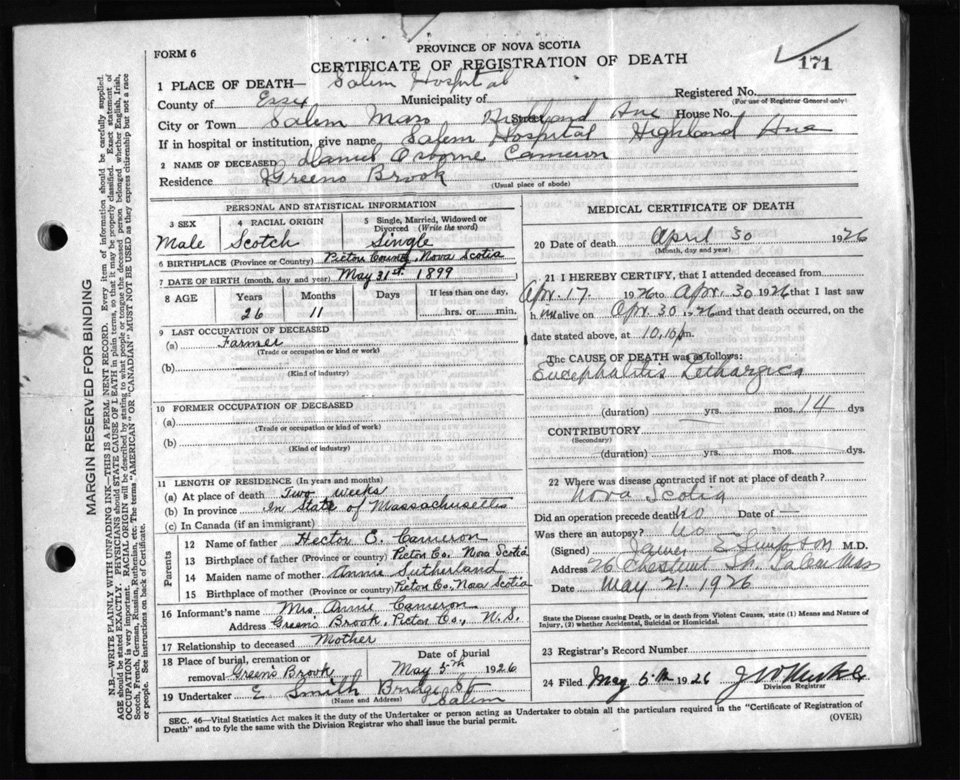 FORM 6
PROVINCE OF NOVA SCOTIA
CERTIFICATE OF REGISTRATION OF DEATH
171
1 PLACE OF DEATH— Salem Hospital
Registered No.
(For use of Registrar General only)
County of Essex Municipality of
City or Town Salem Mass Highland Ave House No.
If in hospital or institution, give name Salem Hospital Highland Ave
2 NAME OF DECEASED Daniel Osborne Cameron
Residence Greens Brook
(Usual place of abode)
PERSONAL AND STATISTICAL INFORMATION
3 SEX Male
4 RACIAL ORIGIN Scotch
5 Single, Married, Widowed or Divorced (Write the word) Single
6 BIRTHPLACE (Province or Country) Pictou County, Nova Scotia
7 DATE OF BIRTH (month, day and year) May 31st 1899
8 AGE Years Months Days If less than one day,
26 11 hrs. or min.
9 LAST OCCUPATION OF DECEASED
(a) Farmer
(Trade or occupation or kind or work)
(b)
(Kind of industry)
10 FORMER OCCUPATION OF DECEASED
(a)
(Trade or occupation or kind of work)
(b)
(Kind of industry)
11 LENGTH OF RESIDENCE (In years and months)
(a) At place of death Two weeks
(b) In province In State of Massachusetts
(c) In Canada (if an immigrant)
Parents
12 Name of father Hector E. Cameron
13 Birthplace of father (Province or country) Pictou Co. Nova Scotia
14 Maiden name of mother Annie Sutherland
15 Birthplace of mother (Province or country) Pictou Co, Nova Scotia
16 Informant's name Mrs Annie Cameron
Address Green's Brook, Pictou Co., N.S.
17 Relationship to deceased Mother
18 Place of burial, cremation or removal Green's Brook
Date of burial May 5th 1926
19 Undertaker E Smith Bridge St
(Name and Address) Salem
MEDICAL CERTIFICATE OF DEATH
20 Date of death April 30 1926
(Month, day and year)
21 I HEREBY CERTIFY, that I attended deceased from
Apr. 17 1926 to Apr. 30 1926 that I last saw
h im alive on Apr. 30 1926 and that death occurred, on the
date stated above, at 10.10 pm.
The CAUSE OF DEATH was as follows:
Encephalitis Lethargica
(duration) yrs. mos. 14 dys
CONTRIBUTORY
(Secondary)
(duration) yrs. mos. dys.
22 Where was disease contracted if not at place of death?
Nova Scotia
Did an operation precede death? No Date of —
Was there an autopsy? No
(Signed) James E Simpson M.D.
Address 26 Chestnut St. Salem Mass
Date May 21. 1926
State the Disease causing Death, or in death from Violent Causes, state (1) Means and Nature of
Injury, (2) whether Accidental, Suicidal or Homicidal.
23 Registrar's Record Number
24 Filed May 5th 1926
Division Registrar
SEC. 46—Vital Statistics Act makes it the duty of the Undertaker or person acting as Undertaker to obtain all the particulars required in the "Certificate of Registration of
Death" and to fyle the same with the Division Registrar who shall issue the burial permit.
(OVER)
MARGIN RESERVED FOR BINDING
N.B.—WRITE PLAINLY WITH UNFADING INK—THIS IS A PERMANENT RECORD. Every item of information should be carefully supplied.
AGE should be stated EXACTLY. PHYSICIANS should STATE CAUSE OF DEATH in plain terms, so that it may be properly classified. Exact statement of
OCCUPATION is very important. RACIAL ORIGIN will be described by stating to what people or tongue the deceased person belonged whether English, Irish,
Scotch, French, German, Russian, Ruthenian, etc. The terms "AMERICAN" OR "CANADIAN" MUST NOT BE USED as they express citizenship but not a race
or people. See instructions on back of Certificate.